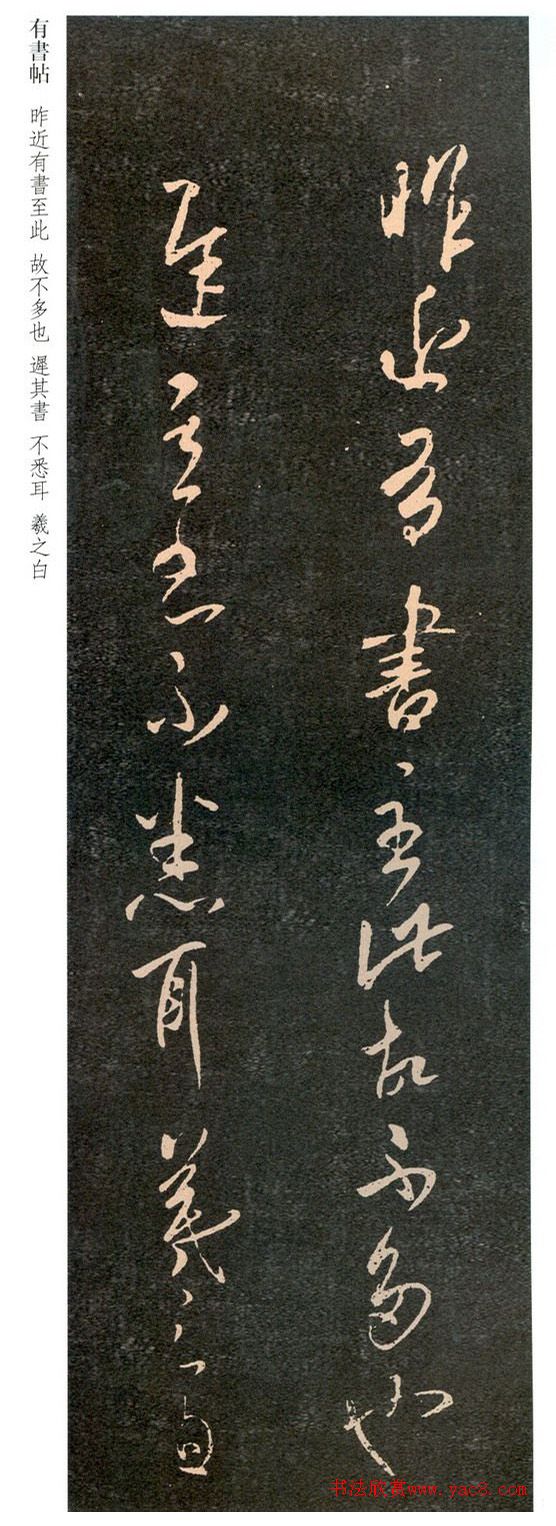 有書帖 昨近有書至此 故不多也 遲其書 不悉耳 羲之白
昨近有書至此故不多也
遲其書不悉耳羲之白
书法欣赏www.yac8.com